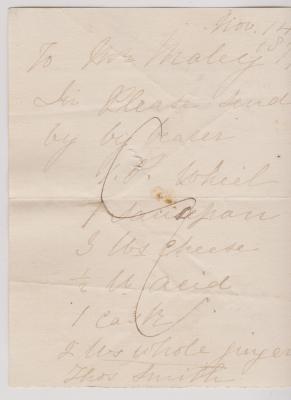 Nov. 14
187
To Mr Maley
Sir Please send
by by bearer
1 Saucepan
3 lbs cheese
½ lb acid
1 cask
2 lbs whole ginger
Thos Smith